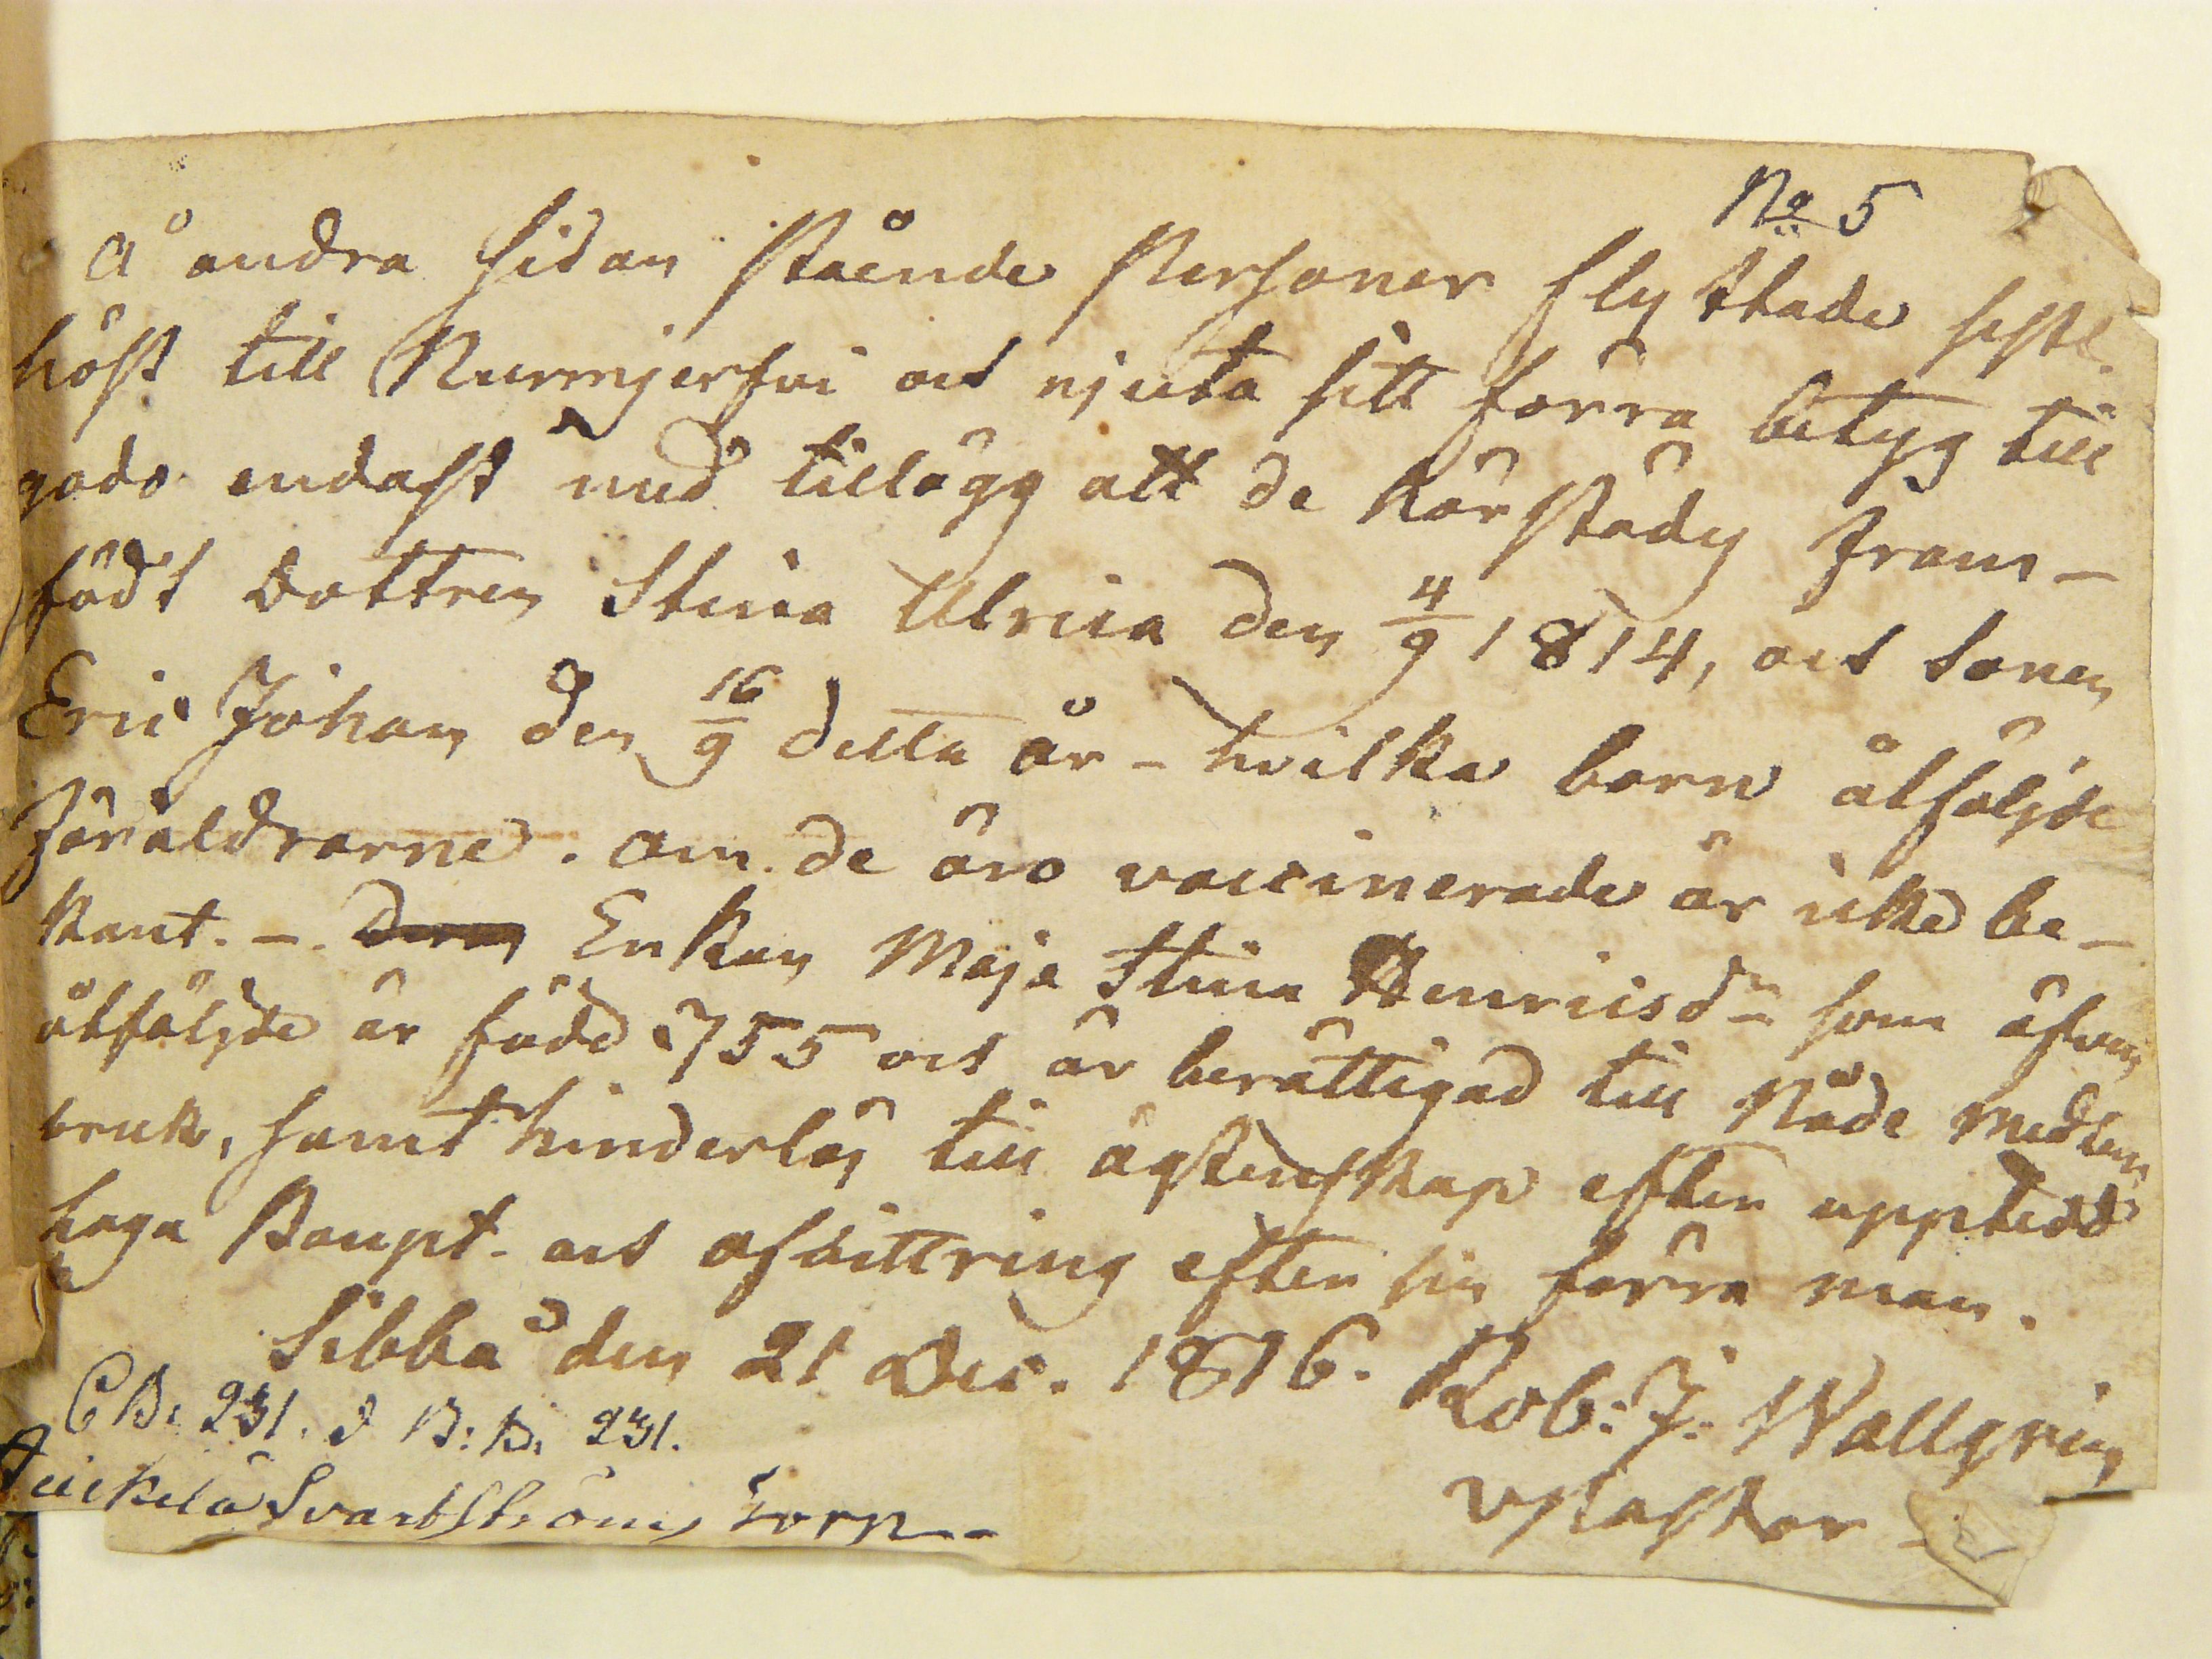 No 5
Å andra sidan stående Personer flyttade sistl.
höst till Nurmjerfvi och njuta sitt förra betyg till
godo endast med tillägg att de härstädes fram-
födt dottren Stina Ulrica den 4/9 1814, och sonen
Eric Johan den 16/9 detta år - hvilka barn åtföljde
föräldrarne. Om de äro vaccinerade är icke be-
kant. - Enkan Maja Stina Henricsdr som äfven
åtföljde är född 755 och är berättigad till Nåde medlens
bruk, samt hinderlös till ägtenskap efter uppledd
laga Boupt. och afvittring efter sin förra man.
Sibbå den 21 Dec. 1816. Rob: J: Wallgren
v Pastor
CB: 231. d B: B: 231.
Svartströms torp